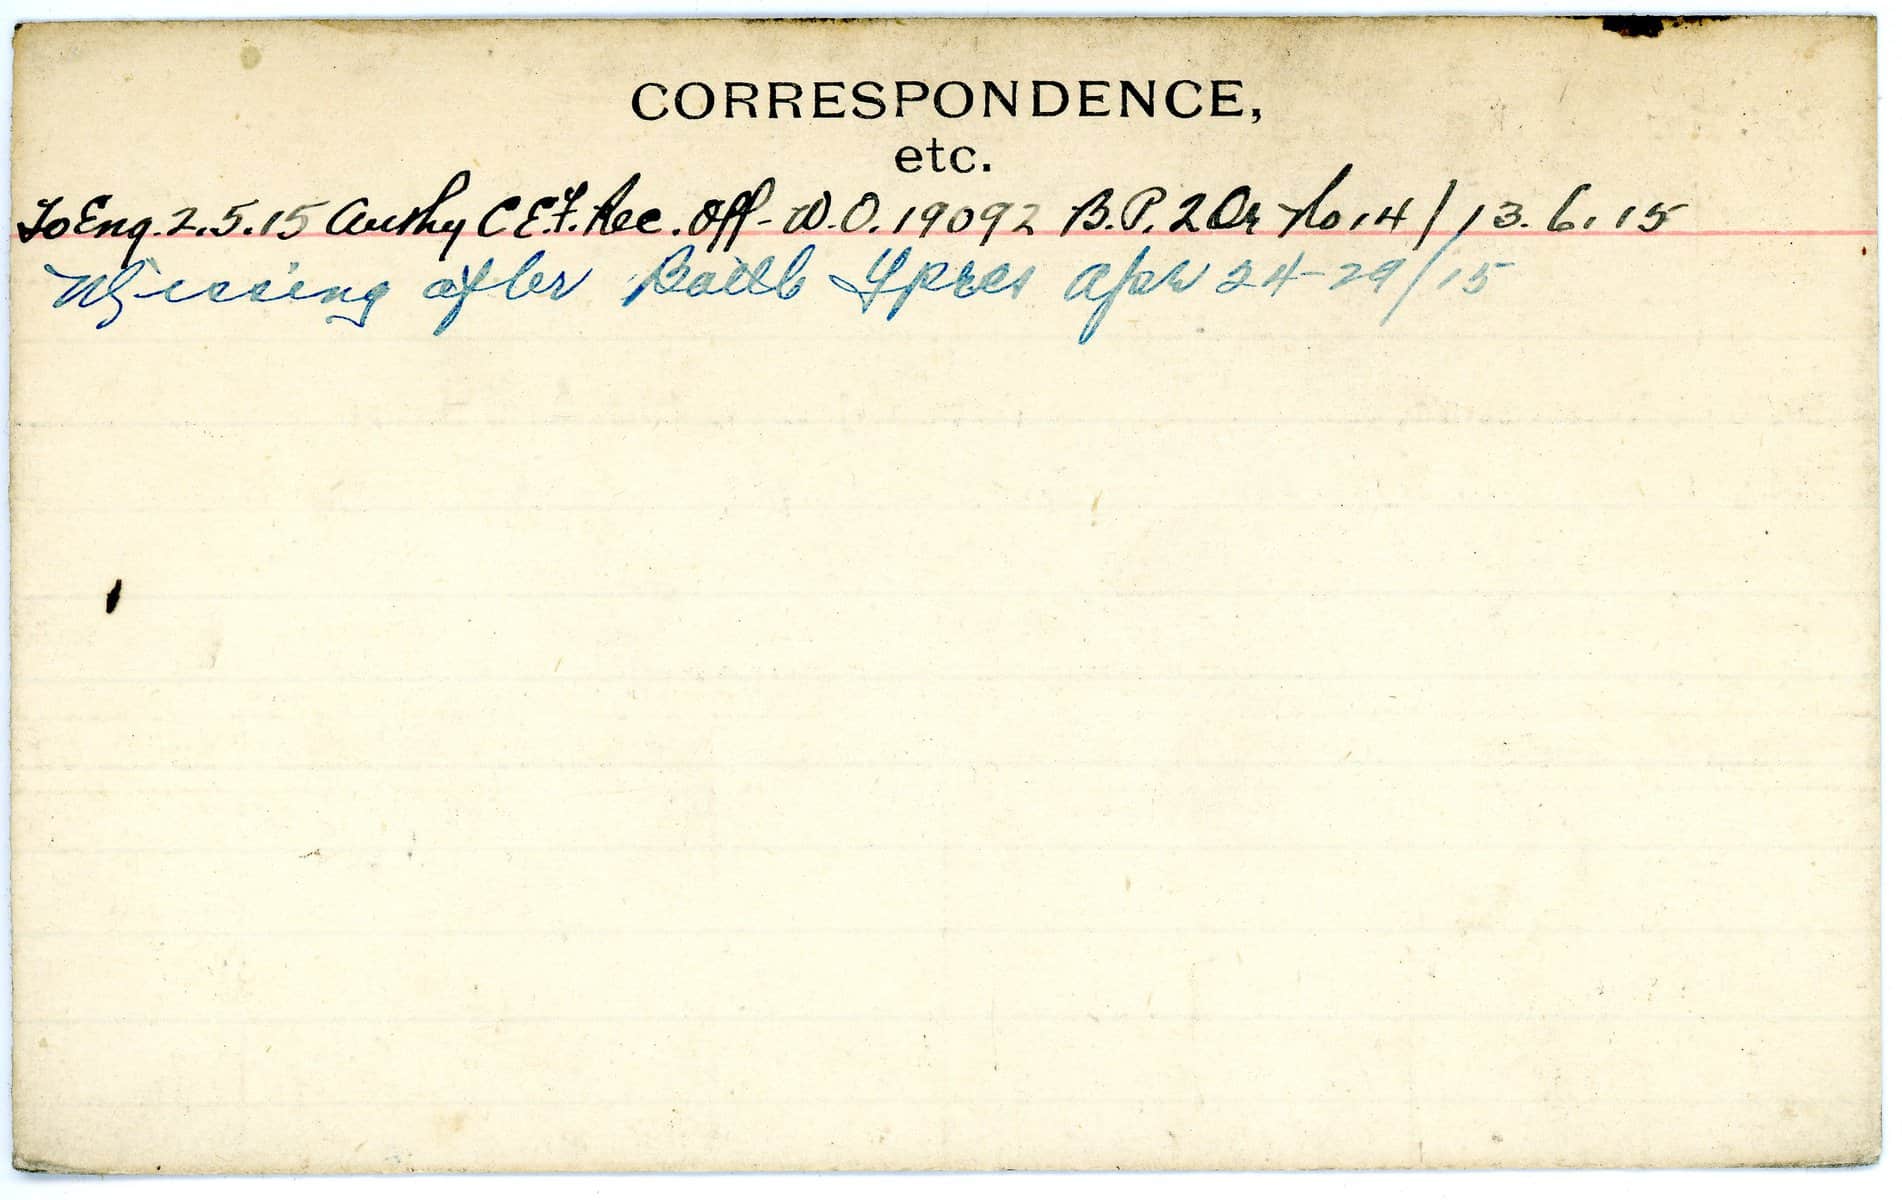 CORRESPONDENCE,
etc.
To Eng. 2.5.15 Authy C.E.F. Rec. Off - W.O. 19092 B.P. 2 Or No 14/13.6.15
Missing after Battle Ypres Apr 24-29/15